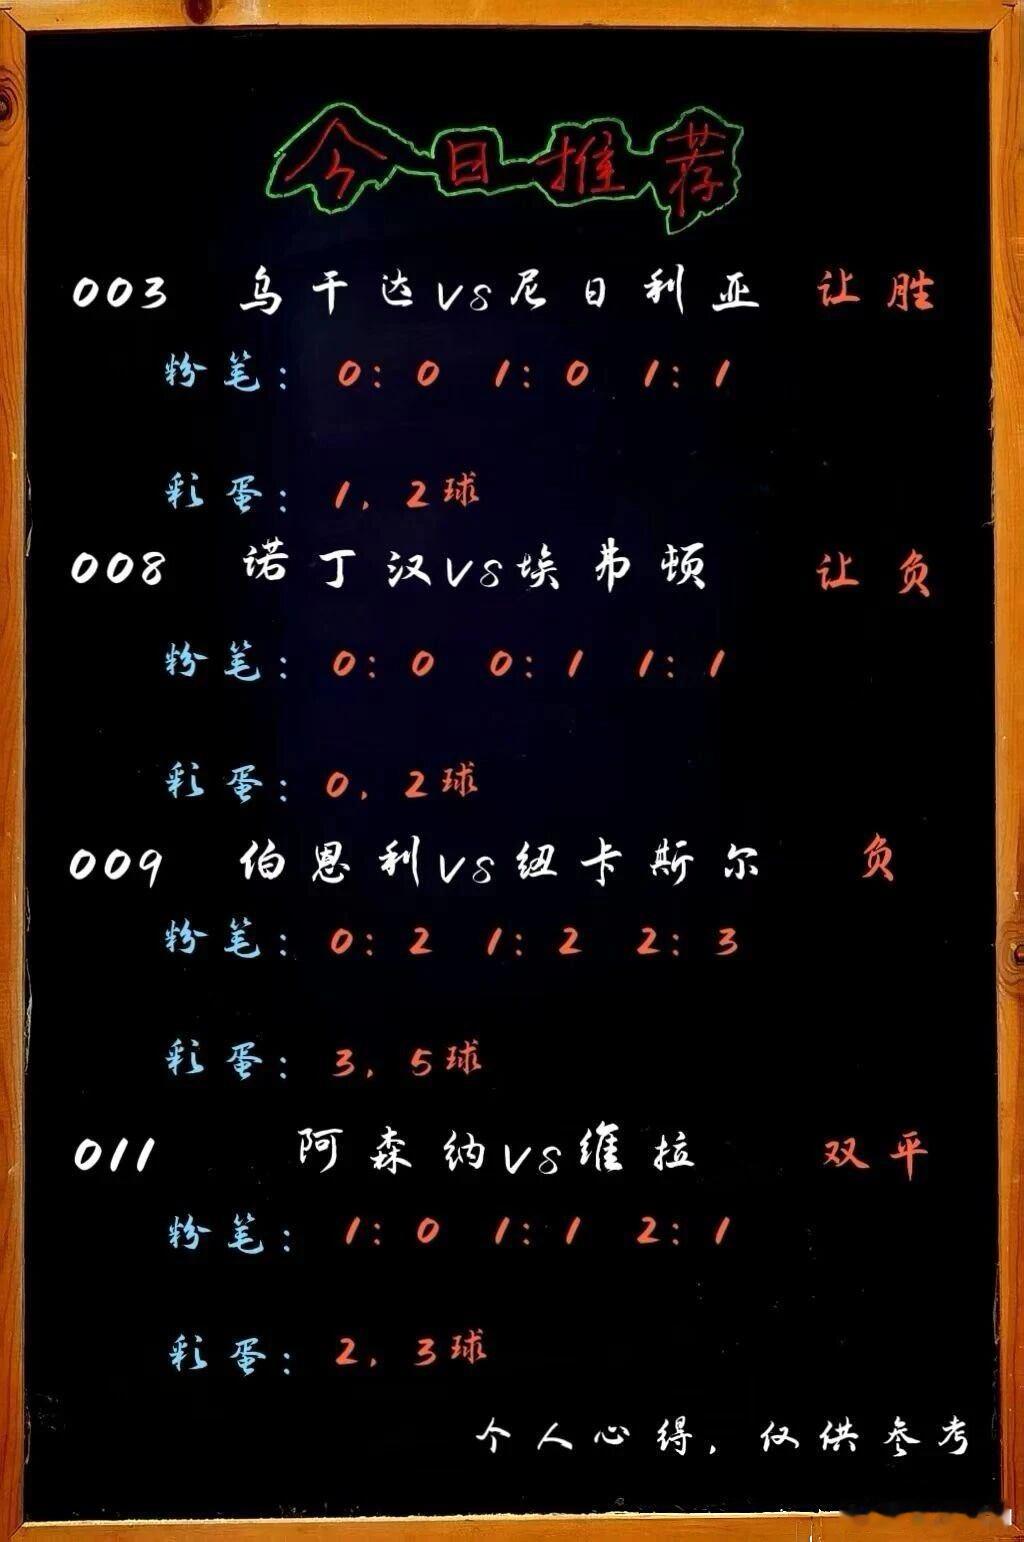 今日推荐
003 乌干达VS尼日利亚 让胜
粉笔: 0:0 1:0 1:1
彩蛋: 1,2球
008 诺丁汉VS埃弗顿 让负
粉笔: 0:0 0:1 1:1
彩蛋: 0,2球
009 伯恩利VS纽卡斯尔 负
粉笔: 0:2 1:2 2:3
彩蛋: 3,5球
011 阿森纳VS维拉 双平
粉笔: 1:0 1:1 2:1
彩蛋: 2,3球
个人心得,仅供参考